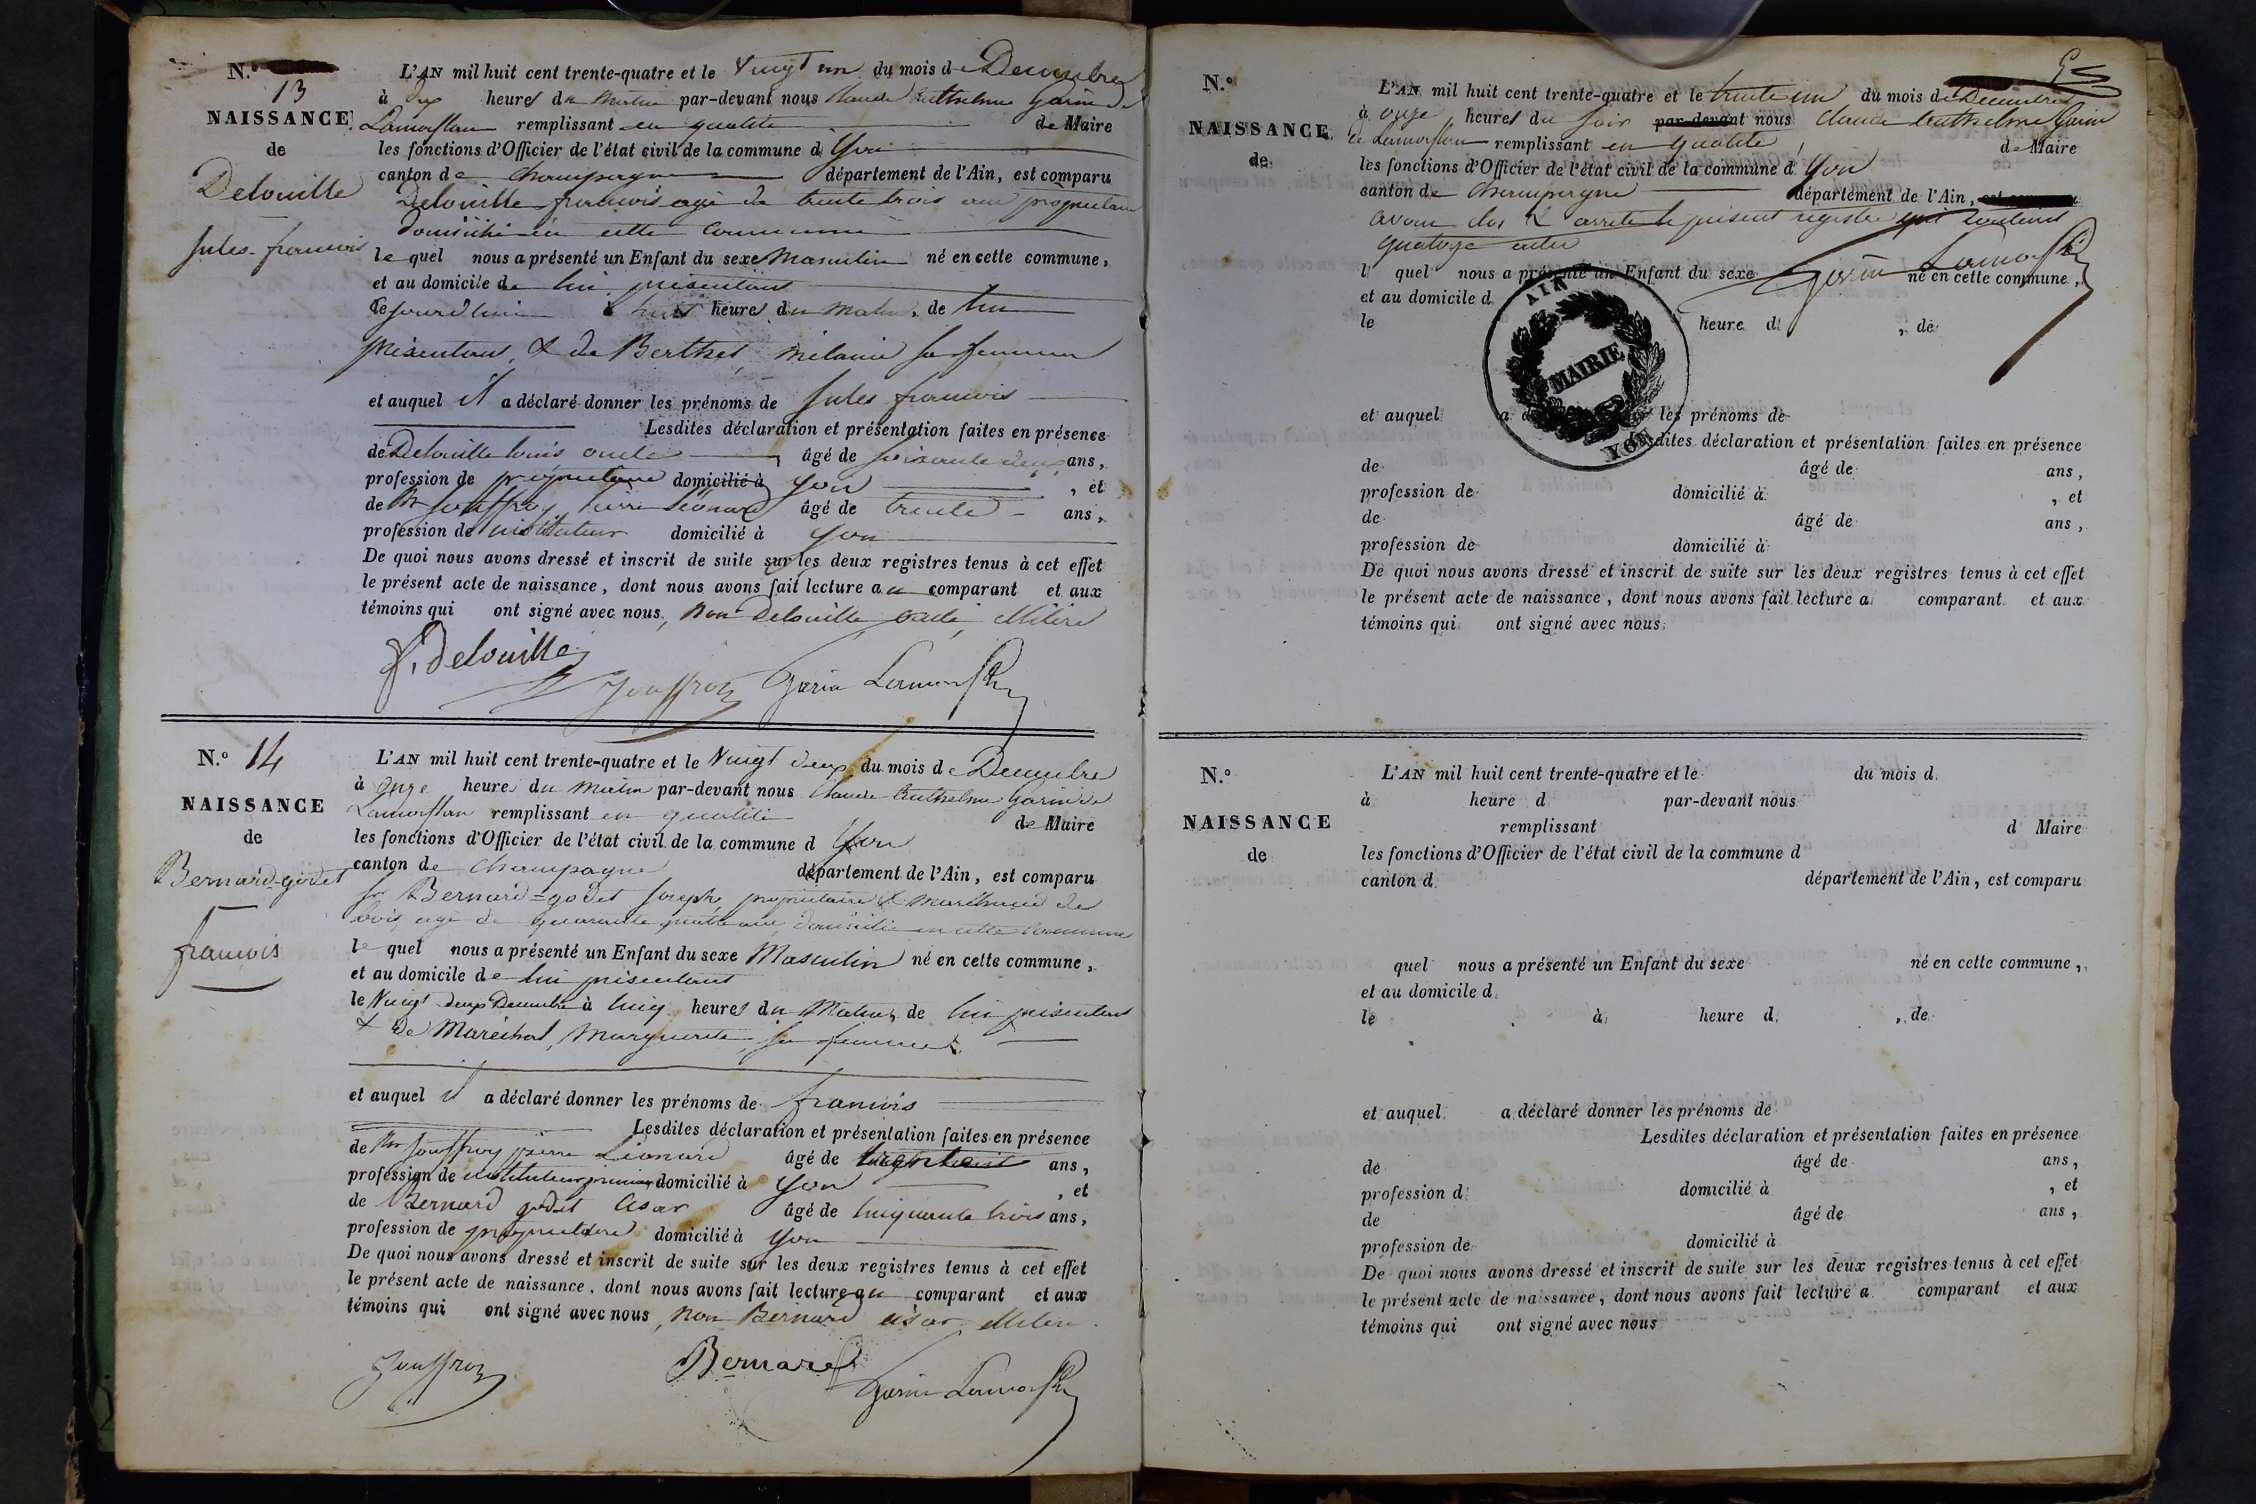 N.º
13
NAISSANCE
de
Delouille
Jules francois
L'AN mil huit cent trente-quatre et le Vingt un du mois de Decembre
à dix heures du matin par-devant nous Claude Anthelme Garin de
Lamorflan remplissant en qualité de Maire
les fonctions d'Officier de l'état civil de la commune d'Yon
canton de Champagne département de l'Ain, est comparu
Delouille francois agé de trente trois ans propriétaire
domicilié en cette commune
le quel nous a présenté un Enfant du sexe Masculin né en cette commune,
et au domicile de lui présentant
cejourd'hui à huit heures du matin, de lui
présentant, & de Berthet, mélanie sa femme
et auquel il a déclaré donner les prénoms de Jules francois
Lesdites déclaration et présentation faites en présence
de Delouille louis oncle âgé de soixante deux ans,
profession de propriétaire domicilié à Yon, et
de Mr Jouffroy pierre Léonard âgé de trente ans,
profession de instituteur domicilié à Yon
De quoi nous avons dressé et inscrit de suite sur les deux registres tenus à cet effet
le présent acte de naissance, dont nous avons fait lecture au comparant et aux
témoins qui ont signé avec nous, non Delouille illitéré
f. Delouille
Jouffroy Garin Lamorflan
N.º 14
NAISSANCE
de
Bernard-godet
francois
L'AN mil huit cent trente-quatre et le Vingt deux du mois de Decembre
à onze heures du matin par-devant nous Claude Anthelme Garin de
Lamorflan remplissant en qualité de Maire
les fonctions d'Officier de l'état civil de la commune d Yon
canton de Champagne département de l'Ain, est comparu
sr Bernard-godet Joseph, propriétaire & marchand de
bois agé de quarante quatre ans, domicilié en cette Commune
le quel nous a présenté un Enfant du sexe Masculin né en cette commune,
et au domicile de lui présentant
le Vingt deux Decembre à cinq heures du Matin, de lui présentant
& de Maréchal, Marguerite, sa femme
et auquel il a déclaré donner les prénoms de francois
Lesdites déclaration et présentation faites en présence
de Mr Jouffroy pierre Léonard âgé de trente ans,
profession de instituteur primaire domicilié à Yon, et
de Bernard godet César âgé de cinquante trois ans,
profession de propriétaire domicilié à Yon
De quoi nous avons dressé et inscrit de suite sur les deux registres tenus à cet effet
le présent acte de naissance, dont nous avons fait lecture au comparant et aux
témoins qui ont signé avec nous, non Bernard césar illitéré
Jouffroy Bernard
Garin Lamorflan
N.º
NAISSANCE
de
L'AN mil huit cent trente-quatre et le trente un du mois de Decembre
à onze heures du soir par-devant nous Claude Anthelme Garin
de Lamorflan remplissant en qualité de Maire
les fonctions d'Officier de l'état civil de la commune d'Yon
canton de Champagne département de l'Ain,
avons clos & arrêté le présent registre qui contient
quatorze actes
Garin Lamorflan
l quel nous a présenté un Enfant du sexe né en cette commune,
et au domicile d
le heure d , de
AIN
MAIRIE
YON
et auquel a les prénoms de
Lesdites déclaration et présentation faites en présence
de âgé de ans,
profession de domicilié à , et
de âgé de ans,
profession de domicilié à
De quoi nous avons dressé et inscrit de suite sur les deux registres tenus à cet effet
le présent acte de naissance, dont nous avons fait lecture a comparant et aux
témoins qui ont signé avec nous,
N.º
NAISSANCE
de
L'AN mil huit cent trente-quatre et le du mois d
à heure d par-devant nous
remplissant d Maire
les fonctions d'Officier de l'état civil de la commune d
canton d département de l'Ain, est comparu
quel nous a présenté un Enfant du sexe né en cette commune,
et au domicile d
le à heure d , de
et auquel a déclaré donner les prénoms de
Lesdites déclaration et présentation faites en présence
de âgé de ans,
profession d domicilié à , et
de âgé de ans,
profession de domicilié à
De quoi nous avons dressé et inscrit de suite sur les deux registres tenus à cet effet
le présent acte de naissance, dont nous avons fait lecture a comparant et aux
témoins qui ont signé avec nous